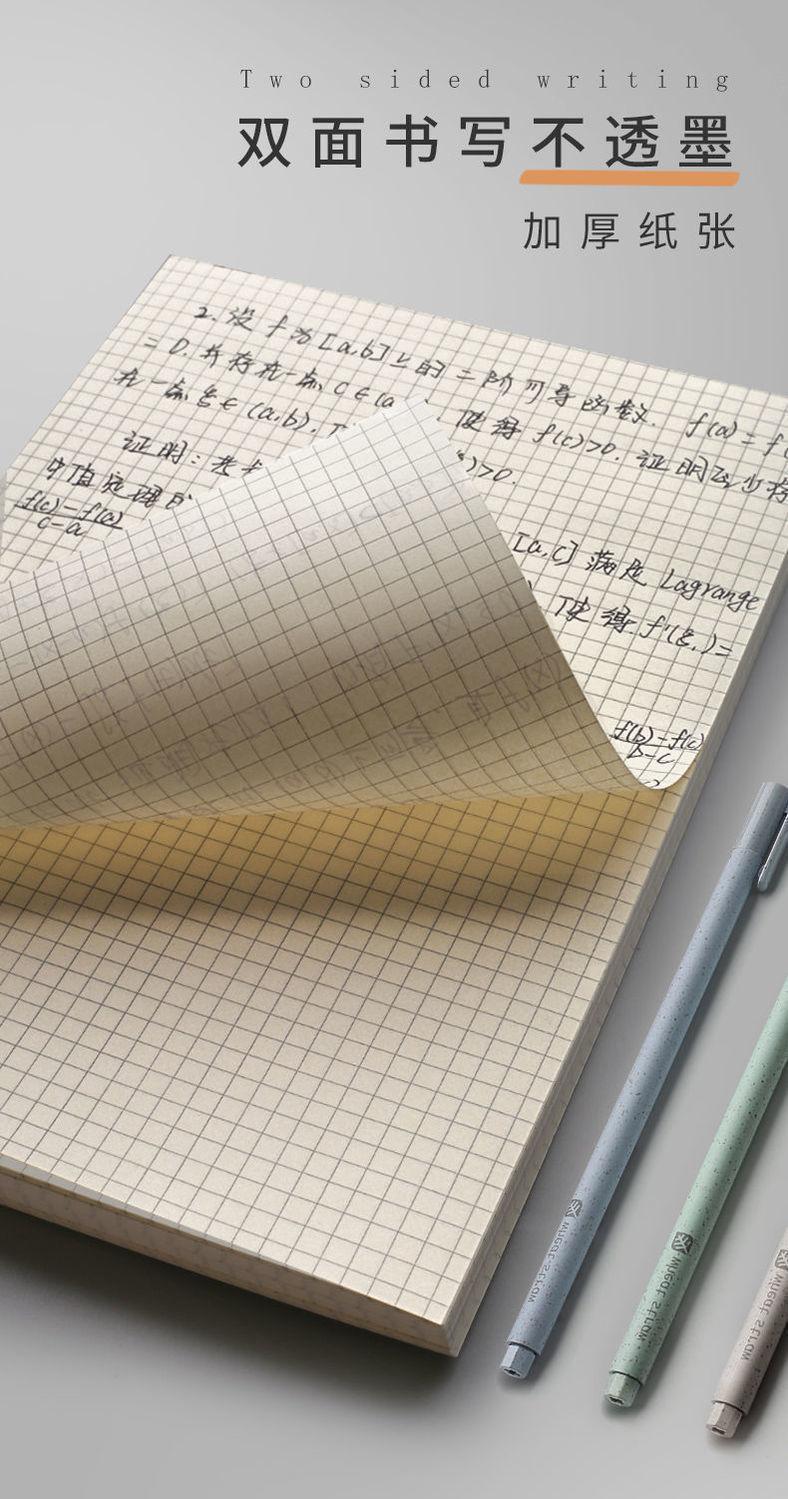 Two sided writing
双面书写不透墨
加厚纸张
2. 设 f 为 [a,b] 上的二阶可导函数. f(a) = f(
= 0. 并存在一点 c ∈ (a 使得 f(c)>0. 证明至少存
在一点 ξ ∈ (a,b). )>0.
证明:
中值定理
f(c)-f(a)
c-a
[a,c] 满足 Lagrange
使得 f'(ξ₁)=
f(b)-f(c)
b-c
wheat straw
wheat straw
wheat straw